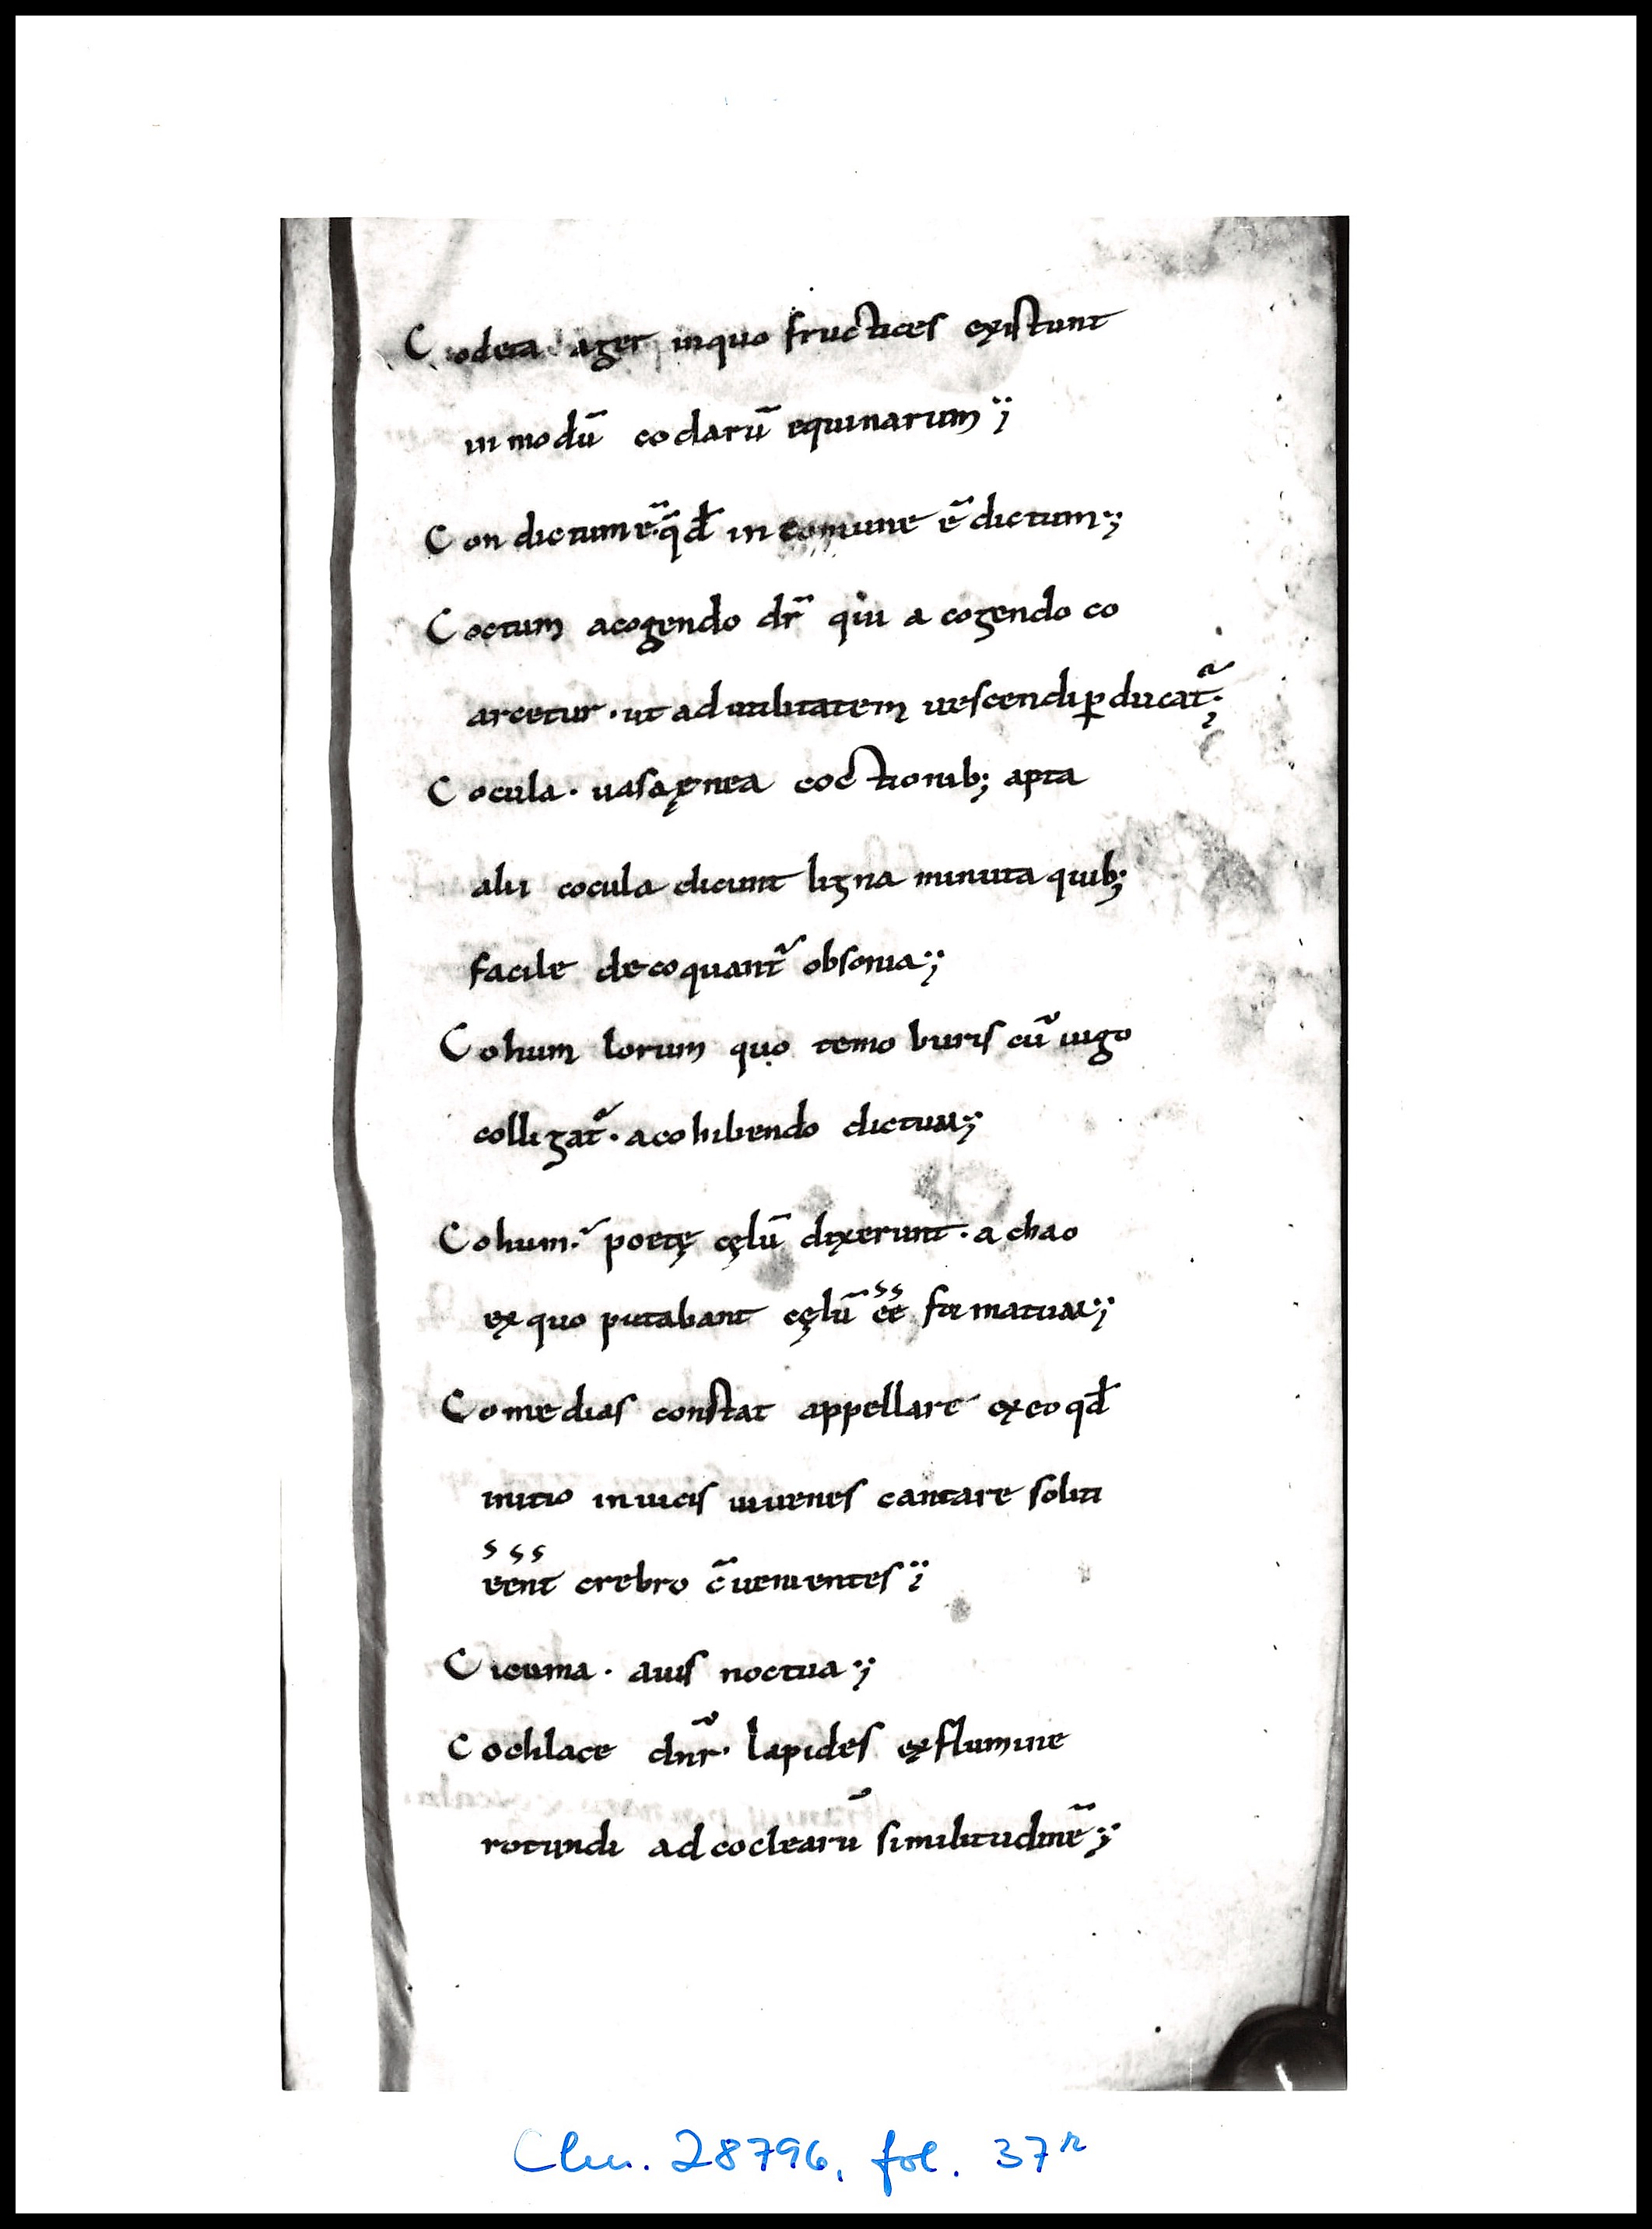 Codeta ager inquo fructices existunt
in modū codarū equinarum ;
Con dictum ē q̄d in comune ē dictum ;
Coctum acogendo dr̄ qiu a cogendo co
arcetur · ut ad utilitatem uescendi ꝑducat̄ ;
Cocula · uasa ęnea coctionib; apta
alii cocula dicunt ligna minuta quib;
facile decoquant̄ obsonia ;
Cohum lorum quo temo buris cū iugo
colligat̄ · acohibendo dictum ;
Cohum · poetę cęlū dixerunt · a chao
ex quo putabant cęlū ēē formatum ;
Comedias constat appellare exeo qđ
initio inuicis iuuenes cantare soliti
ēēnt crebro c̄uenientes ;
Cicuma · auis noctua ;
Cochlace dn̄r · lapides ex flumine
rotundi ad coclearū similitudinē ;
Clm. 28796, fol. 37r